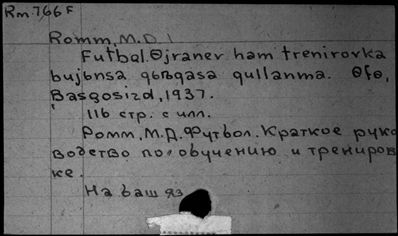 Rm.766 F
Romm, M.D.
Futbal. Өjranev ham trenirovka
bujьnsa qьsqasa qullanma. Өfө,
Basqosizd, 1937.
116 стр. с илл.
Ромм, М.Д. Футбол. Краткое руко
водство по обучению и трениров
ке.
На баш яз